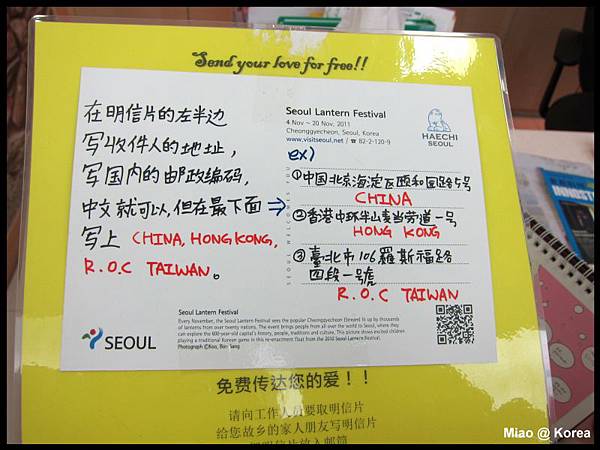 Send your love for free!!
在明信片的左半边
写收件人的地址,
写国内的邮政编码,
中文就可以,但在最下面→
写上 CHINA, HONGKONG,
R.O.C TAIWAN。
Seoul Lantern Festival
4 Nov ~ 20 Nov, 2011
Cheonggyecheon, Seoul, Korea
www.visitseoul.net / ☎ 82-2-120-9
HAECHI
SEOUL
ex)
①中国北京海淀区颐和园路5号
CHINA
②香港中环半山麦当劳道一号
HONG KONG
③臺北市106羅斯福路
四段一號
R.O.C TAIWAN
SEOUL WELCOMES YOU
Seoul Lantern Festival
Every November, the Seoul Lantern Festival sees the popular Cheonggyecheon (Stream) lit up by thousands
of lanterns from over twenty nations. The event brings people from all over the world to Seoul, where they
can explore the 600-year-old capital's history, people, traditions and culture. This picture shows excited children
playing a traditional Korean game in this re-enactment float from the 2010 Seoul Lantern Festival.
SEOUL
免费传达您的爱!!
请向工作人员要取明信片
给您故乡的家人朋友写明信片
Miao @ Korea